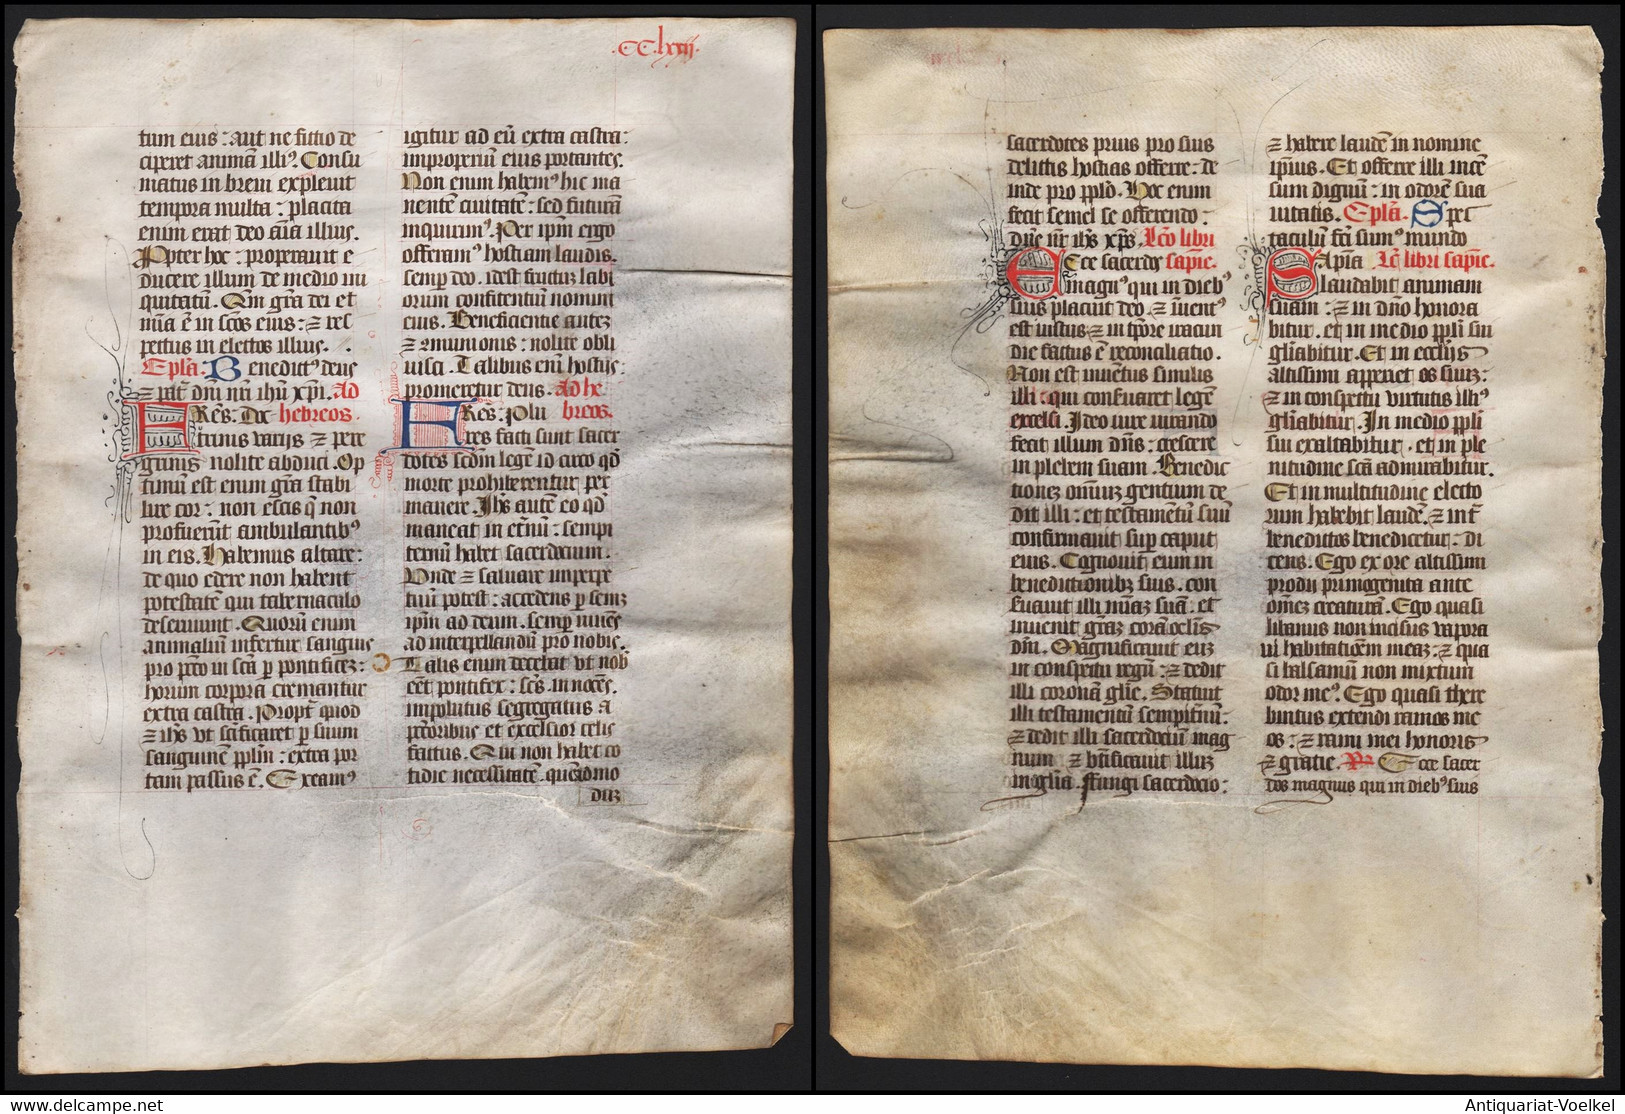 .CClxxij.
tum eius : aut ne fictio de
ciperet animã illi9. Consu
matus in brevi explevit
tempora multa : placita
enim erat deo aĩa illius.
Ppter hoc : properavit e
ducere illum de medio ini
quitatũ. Qm̃ gr̃a dei et
mĩa ẽ in scõs eius : ⁊ res
pectus in electos illius.
Epl̃a : Benedict9 deus
⁊ pat̃ dñi nr̃i ihũ xp̃i. ad
FRẽs : Doc hebreos.
trinis varijs ⁊ pere
grinis nolite abduci. Op
timũ est enim gr̃a stabi
lire cor : non escis q̃ non
profuerũt ambulantib9
in eis. Habemus altare :
de quo edere non habent
potestatẽ qui tabernaculo
deserviunt. Quorũ enim
animaliũ infertur sanguis
pro pctõ in scã p pontificez :
horum corpora cremantur
extra castra. Propt̃ quod
⁊ ihs vt sc̃ificaret p suum
sanguinẽ pplm̃ : extra por
tam passus ẽ. Exeam9
igitur ad eũ extra castra :
improperiũ eius portantes.
Non enim habem9 hic ma
nentẽ civitatẽ : sed futurã
inquirim9. Per ipm̃ ergo
offeram9 hostiam laudis
semp deo. idest fructus labi
orum confitentiũ nomini
eius. Beneficentie autez
⁊ cõmunionis : nolite obli
visci. Talibus enĩ hostijs :
promeretur deus. ad he
FRẽs : Plu breos.
res facti sunt sacer
dotes scdm̃ legẽ id circo qd̃
morte prohiberentur per
manere. Ihs autẽ eo qd̃
maneat in et̃nũ : sempi
ternũ habet sacerdocium.
Vnde ⁊ salvare inperpe
tuũ potest : accedens p semz
ipm̃ ad deum. semp vivẽs
ad interpellandũ pro nobis.
Talis enim decebat vt nob
eẽt pontifex : sc̃s. innocẽs.
impolutus segregatus a
pccõribus et excelsior celis
factus. Qui non habet co
tidie necessitatẽ. quẽadmo
duz
sacerdotes prius pro suis
delictis hostias offerre : de
inde pro ppl̃o. Hoc enim
fecit semel se offerendo :
dñs nr̃ ihs xp̃s. Lcõ libri
ECce sacerdos sapiẽ.
magn9 qui in dieb9
suis placuit deo. ⁊ invent9
est iustus ⁊ in tp̃ore iracun
die factus ẽ reconciliatio.
Non est inventus similis
illi : qui conservaret legẽ
excelsi. Ideo iure iurando
fecit illum dñs : crescere
in plebem suam. Benedic
tionez omĩuz gentium de
dit illi : et testamentũ suũ
confirmavit sup caput
eius. Cognovit eum in
benedictionibz suis. con
servavit illi mĩaz suã. et
invenit gr̃az corã ocl̃is
dñi. Magnificavit euz
in conspectu regũ : ⁊ dedit
illi coronam gl̃ie. Statuit
illi testamentũ sempit̃nũ :
⁊ dedit illi sacerdociũ mag
num ⁊ bt̃ificavit illuz
in gl̃ia. Ffungi sacerdocio :
⁊ habere laudẽ in nomine
ipsius. Et offerre illi incẽ
sum dignũ : in odorẽ sua
vitatis. Epl̃a. Spec
taculũ fcĩ sum9 mundo
SApĩa Lcõ libri sapiẽ.
laudabit animam
suam : ⁊ in dño honora
bitur. et in medio ppl̃i sui
gl̃iabitur. Et in eccl̃ijs
altissimi apperiet os suuz :
⁊ in conspectu virtutis illi9
gl̃iabitur. In medio ppl̃i
sui exaltabitur. et in ple
nitudine scã admirabitur.
Et in multitudine electo
rum habebit laudẽ. ⁊ int̃
benedictos benedicetur : di
cens. Ego ex ore altissimi
prodii primogenita ante
om̃ez creaturã. Ego quasi
libanus non incisus vapora
vi habitatiõem meaz : ⁊ qua
si balsamũ non mixtium
odor me9. Ego quasi there
bintus extendi ramos me
os : ⁊ rami mei honoris
⁊ gratie. Ecce sacer
dos magnus qui in dieb9 suis
www.delcampe.net
Antiquariat-Voelkel